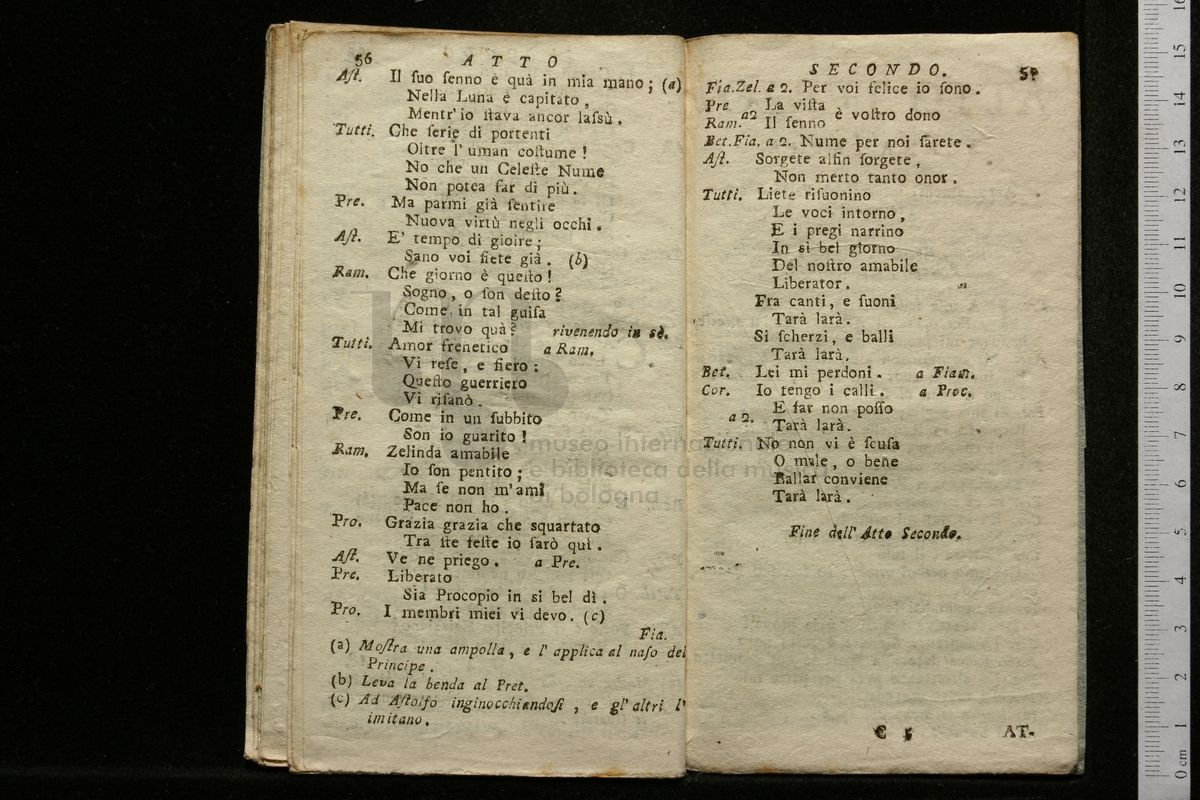 56
ATTO
Aſt. Il ſuo ſenno è quà in mia mano; (a)
Nella Luna è capitato,
Mentr' io ſtava ancor laſsù.
Tutti. Che ſerie di portenti
Oltre l' uman coſtume!
No che un Celeſte Nume
Non potea far di più.
Pre. Ma parmi già ſentire
Nuova virtù negli occhi.
Aſt. E' tempo di gioire;
Sano voi ſiete già. (b)
Ram. Che giorno è queſto!
Sogno, o ſon deſto?
Come in tal guiſa
Mi trovo quà? rivenendo in sè.
Tutti. Amor frenetico a Ram.
Vi reſe, e fiero:
Queſto guerriero
Vi riſanò.
Pre. Come in un ſubbito
Son io guarito!
Ram. Zelinda amabile
Io ſon pentito;
Ma ſe non m'ami
Pace non ho.
Pro. Grazia grazia che squartato
Tra ſte feſte io ſarò quì.
Aſt. Ve ne priego. a Pre.
Pre. Liberato
Sia Procopio in si bel dì.
Pro. I membri miei vi devo. (c)
Fia.
(a) Moſtra una ampolla, e l' applica al naſo del
Principe.
(b) Leva la benda al Pret.
(c) Ad Aſtolfo inginocchiandoſi, e gl' altri l'
imitano.
SECONDO.
Fia.Zel. a 2. Per voi felice io ſono.
Pre La viſta
a2 è voſtro dono
Ram. Il ſenno
Bet.Fia. a 2. Nume per noi ſarete.
Aſt. Sorgete alfin ſorgete,
Non merto tanto onor.
Tutti. Liete riſuonino
Le voci intorno,
E i pregi narrino
In si bel giorno
Del noſtro amabile
Liberator.
Fra canti, e ſuoni
Tarà larà.
Si ſcherzi, e balli
Tarà larà.
Bet. Lei mi perdoni. a Fiam.
Cor. Io tengo i calli. a Proc.
a 2. E far non poſſo
Tarà larà.
Tutti. No non vi è ſcuſa
O male, o bene
Ballar conviene
Tarà larà.
Fine dell' Atto Secondo.
C 5
AT-
museo internazionale
e biblioteca della musica
di bologna
0 cm 1 2 3 4 5 6 7 8 9 10 11 12 13 14 15 16